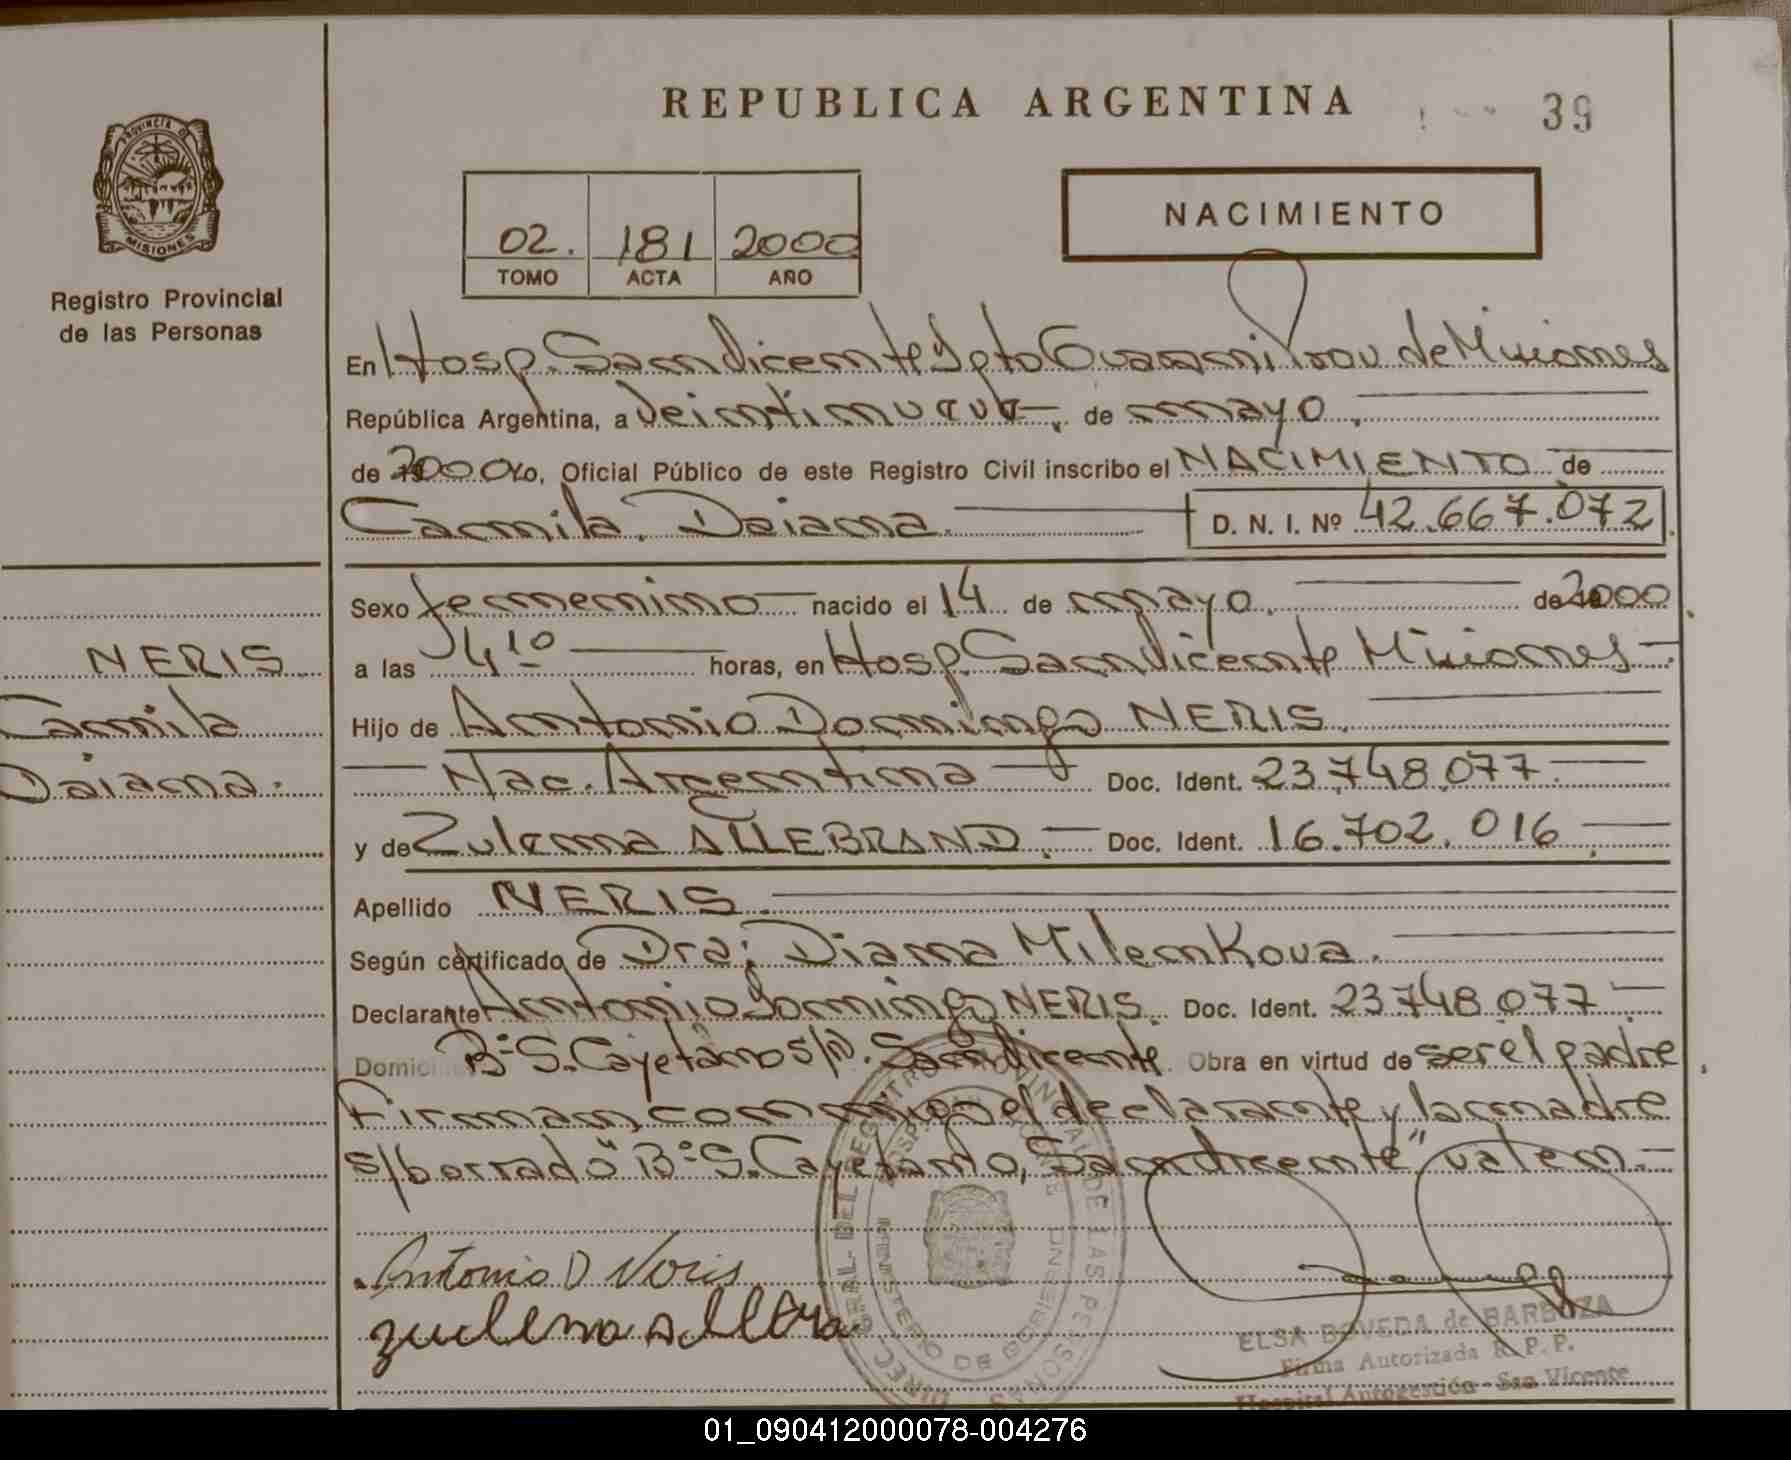 REPUBLICA ARGENTINA
39
PROVINCIA DE
MISIONES
Registro Provincial
de las Personas
02. 181 2000
TOMO ACTA AÑO
NACIMIENTO
En Hosp. San Vicente Dpto Guarani Prov. de Misiones
República Argentina, a Veintinueve de mayo
de 2000 Yo, Oficial Público de este Registro Civil inscribo el NACIMIENTO de
Camila Daiana. D. N. I. Nº 42.667.072
Sexo femenino nacido el 14 de mayo de 2000
a las 4 10 horas, en Hosp. San Vicente Misiones
Hijo de Antonio Domingo NERIS
Nac. Argentina Doc. Ident. 23.748.077
y de Zulema ALLEBRAND. Doc. Ident. 16.702.016
Apellido NERIS
Según certificado de Dra: Diana Milenkova.
Declarante Antonio Domingo NERIS. Doc. Ident. 23748.077
Domici Bº S. Cayetano s/n. San Vicente Obra en virtud de ser el padre
Firman conmigo el declarante y la madre
s/borrado "Bº S. Cayetano, San Vicente" valen.-
NERIS
Camila
Daiana.
Antonio D Neris
zulema allebra
ELSA BOVEDA de BARBOZA
Firma Autorizada R. P. P.
Hospital Autogestión - San Vicente
01_090412000078-004276